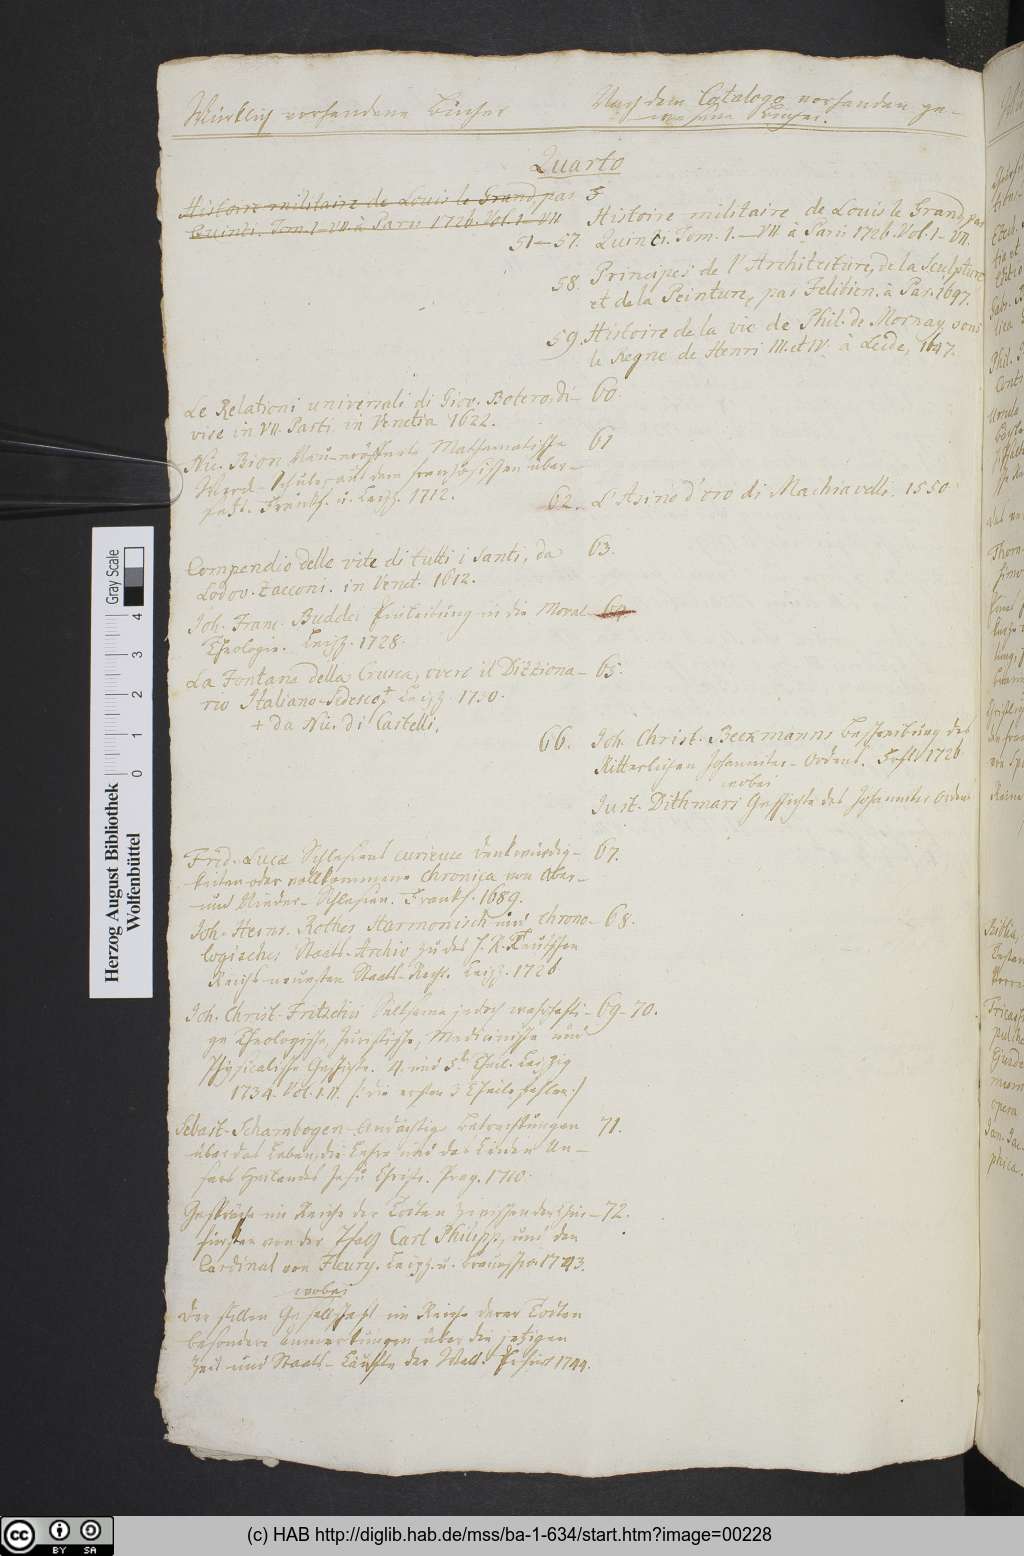 Würklich vorhandene Bücher
Nach dem Catalogo vorhanden ge-
wesene Bücher.
Quarto
Histoire militaire de Louis le Grand, par
Quinci. Tom. I–VII à Paris 1726. Vol. I–VII
51–57. Histoire militaire de Louis le Grand, par
Quinci. Tom. I.–VII à Paris 1726. Vol. I–VII.
58. Principes de l'Architecture, de la Sculpture
et de la Peinture, par Felibien. à Par. 1697.
59. Histoire de la vie de Phil. de Mornay sous
le Regne de Henri III. et IV. à Leide, 1647.
Le Relationi universali di Giov. Botero, di- 60.
vise in VII. Parti in Venetia 1622.
Nic. Bion Neu-eröffnete Mathematische 61
Werck-Schule, aus dem Französischen über-
setzt. Franckf. u. Leipz. 1712.
62. L'Asino d'oro di Machiavelli. 1550
Compendio delle vite di tutti i Santi, da 63.
Lodov. Zacconi. in Venet. 1612.
Joh. Franc. Buddei Einleitung in die Moral- 64
Theologie. Leipz. 1728.
La Fontana della Crusca, overo il Dittiona- 65.
rio Italiano-Tedesco,+ Leipz. 1730.
+ da Nic. di Castelli,
66. Joh. Christ. Beckmanns Beschreibung des
Ritterlichen Johanniter-Ordens. Frft 1726
wobei
Just. Dithmari Geschichte des Johanniter Ordens
Frid. Lucæ Schlesiens curieuse Denckwürdig- 67.
keiten oder vollkommene Chronica von Ober-
und Nieder-Schlesien. Franckf. 1689.
Joh. Henr. Rothes Harmonisch und chrono- 68.
logisches Staats-Archiv zu des H. R. Teutschen
Reichs neuesten Staats-Recht. Leipz. 1726
Joh. Christ. Fritschii Seltsame jedoch wahrhafti- 69–70.
ge Theologische, Juristische, Medicinische und
Physicalische Geschichte. 4. und 5te Theil. Leipzig
1734. Vol. I. II. /: die ersten 3 Theile fehlen :/
Sebast. Schambogen Andächtige Betrachtungen 71.
über das Leben, die Lehre und das Leiden Un-
sers Heilandes Jesu Christi. Prag. 1710.
Gespräche im Reiche der Todten zwischen der Chur- 72.
fürsten von der Pfalz Carl Philipp, und den
Cardinal von Fleury. Leipz. u. Braunschw. 1743.
wobei
Der stillen Gesellschaft im Reiche derer Todten
besondere Anmerkungen über die jetzigen
Zeit- und Staats-Läuffte der Welt. Erfurt 1744.
Herzog August Bibliothek
Wolfenbüttel
0 1 2 3 4
Gray Scale
cc BY SA
(c) HAB http://diglib.hab.de/mss/ba-1-634/start.htm?image=00228